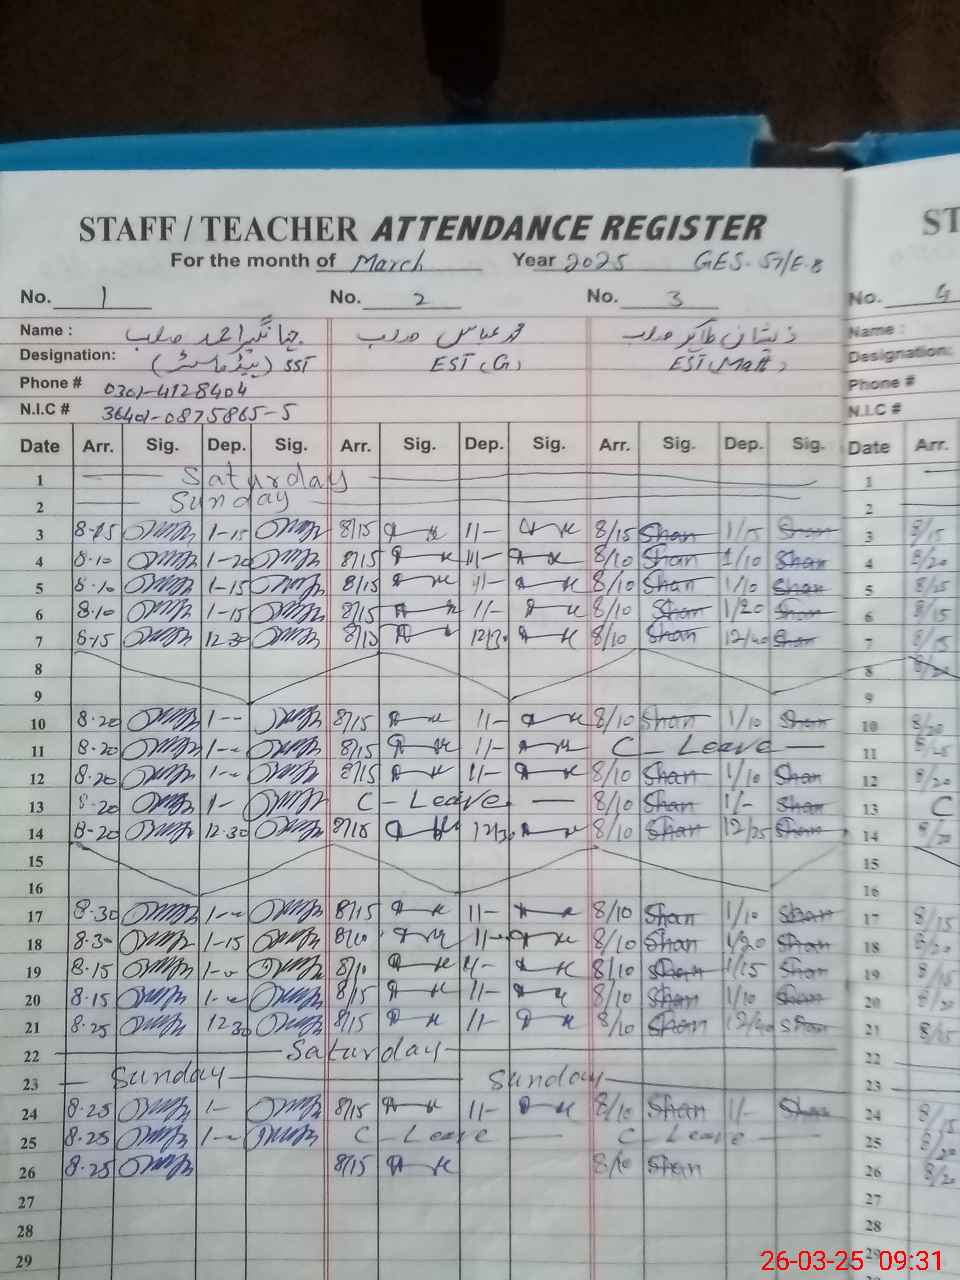 STAFF / TEACHER ATTENDANCE REGISTER ST
For the month of March Year 2025 GES-57/E.B
No. 1 No. 2 No. 3 No. 4
Name : جہانگیر احمد صاحب محمد عباس صاحب ذیشان طاہر صاحب Name :
Designation: (ہیڈ ماسٹر) SST EST (G) EST (Math) Designation:
Phone # 0301-4128404 Phone #
N.I.C # 36401-0875865-5 N.I.C #
Date Arr. Sig. Dep. Sig. Arr. Sig. Dep. Sig. Arr. Sig. Dep. Sig. Date Arr.
1 Saturday 1
2 Sunday 2
3 8-15 1-15 8/15 1/- 8/15 Shan 1/15 Shan 3 8/15
4 8-10 1-20 8/15 1/- 8/10 Shan 1/10 Shan 4 8/20
5 8-10 1-15 8/15 1/- 8/10 Shan 1/10 Shan 5 8/25
6 8-10 1-15 8/15 1/- 8/10 Shan 1/20 Shan 6 8/15
7 8-15 12-30 8/15 12/30 8/10 Shan 12/40 Shan 7 8/15
8 8 8/20
9 9
10 8-20 1-- 8/15 1/- 8/10 Shan 1/10 Shan 10 8/20
11 8-20 1-- 8/15 1/- C - Leave 11 8/25
12 8-20 1-- 8/15 1/- 8/10 Shan 1/10 Shan 12 8/20
13 8-20 1- C - Leave 8/10 Shan 1/- Shan 13 C
14 8-20 12-30 8/15 12/30 8/10 Shan 12/25 Shan 14 8/20
15 15
16 16
17 8-30 1-- 8/15 1/- 8/10 Shan 1/10 Shan 17 8/15
18 8-30 1-15 8/10 1/- 8/10 Shan 1/20 Shan 18 8/20
19 8-15 1-- 8/10 1/- 8/10 Shan 1/15 Shan 19 8/15
20 8-15 1-- 8/15 1/- 8/10 Shan 1/10 Shan 20 8/20
21 8-25 12-30 8/15 1/- 8/10 Shan 12/40 Shan 21 8/15
22 Saturday 22
23 Sunday Sunday 23
24 8-25 1- 8/15 1/- 8/10 Shan 1/- Shan 24 8/15
25 8-25 1-- C - Leave C - Leave 25 8/20
26 8-25 8/15 8/10 Shan 26 8/20
27 27
28 28
29 29
26-03-25 09:31